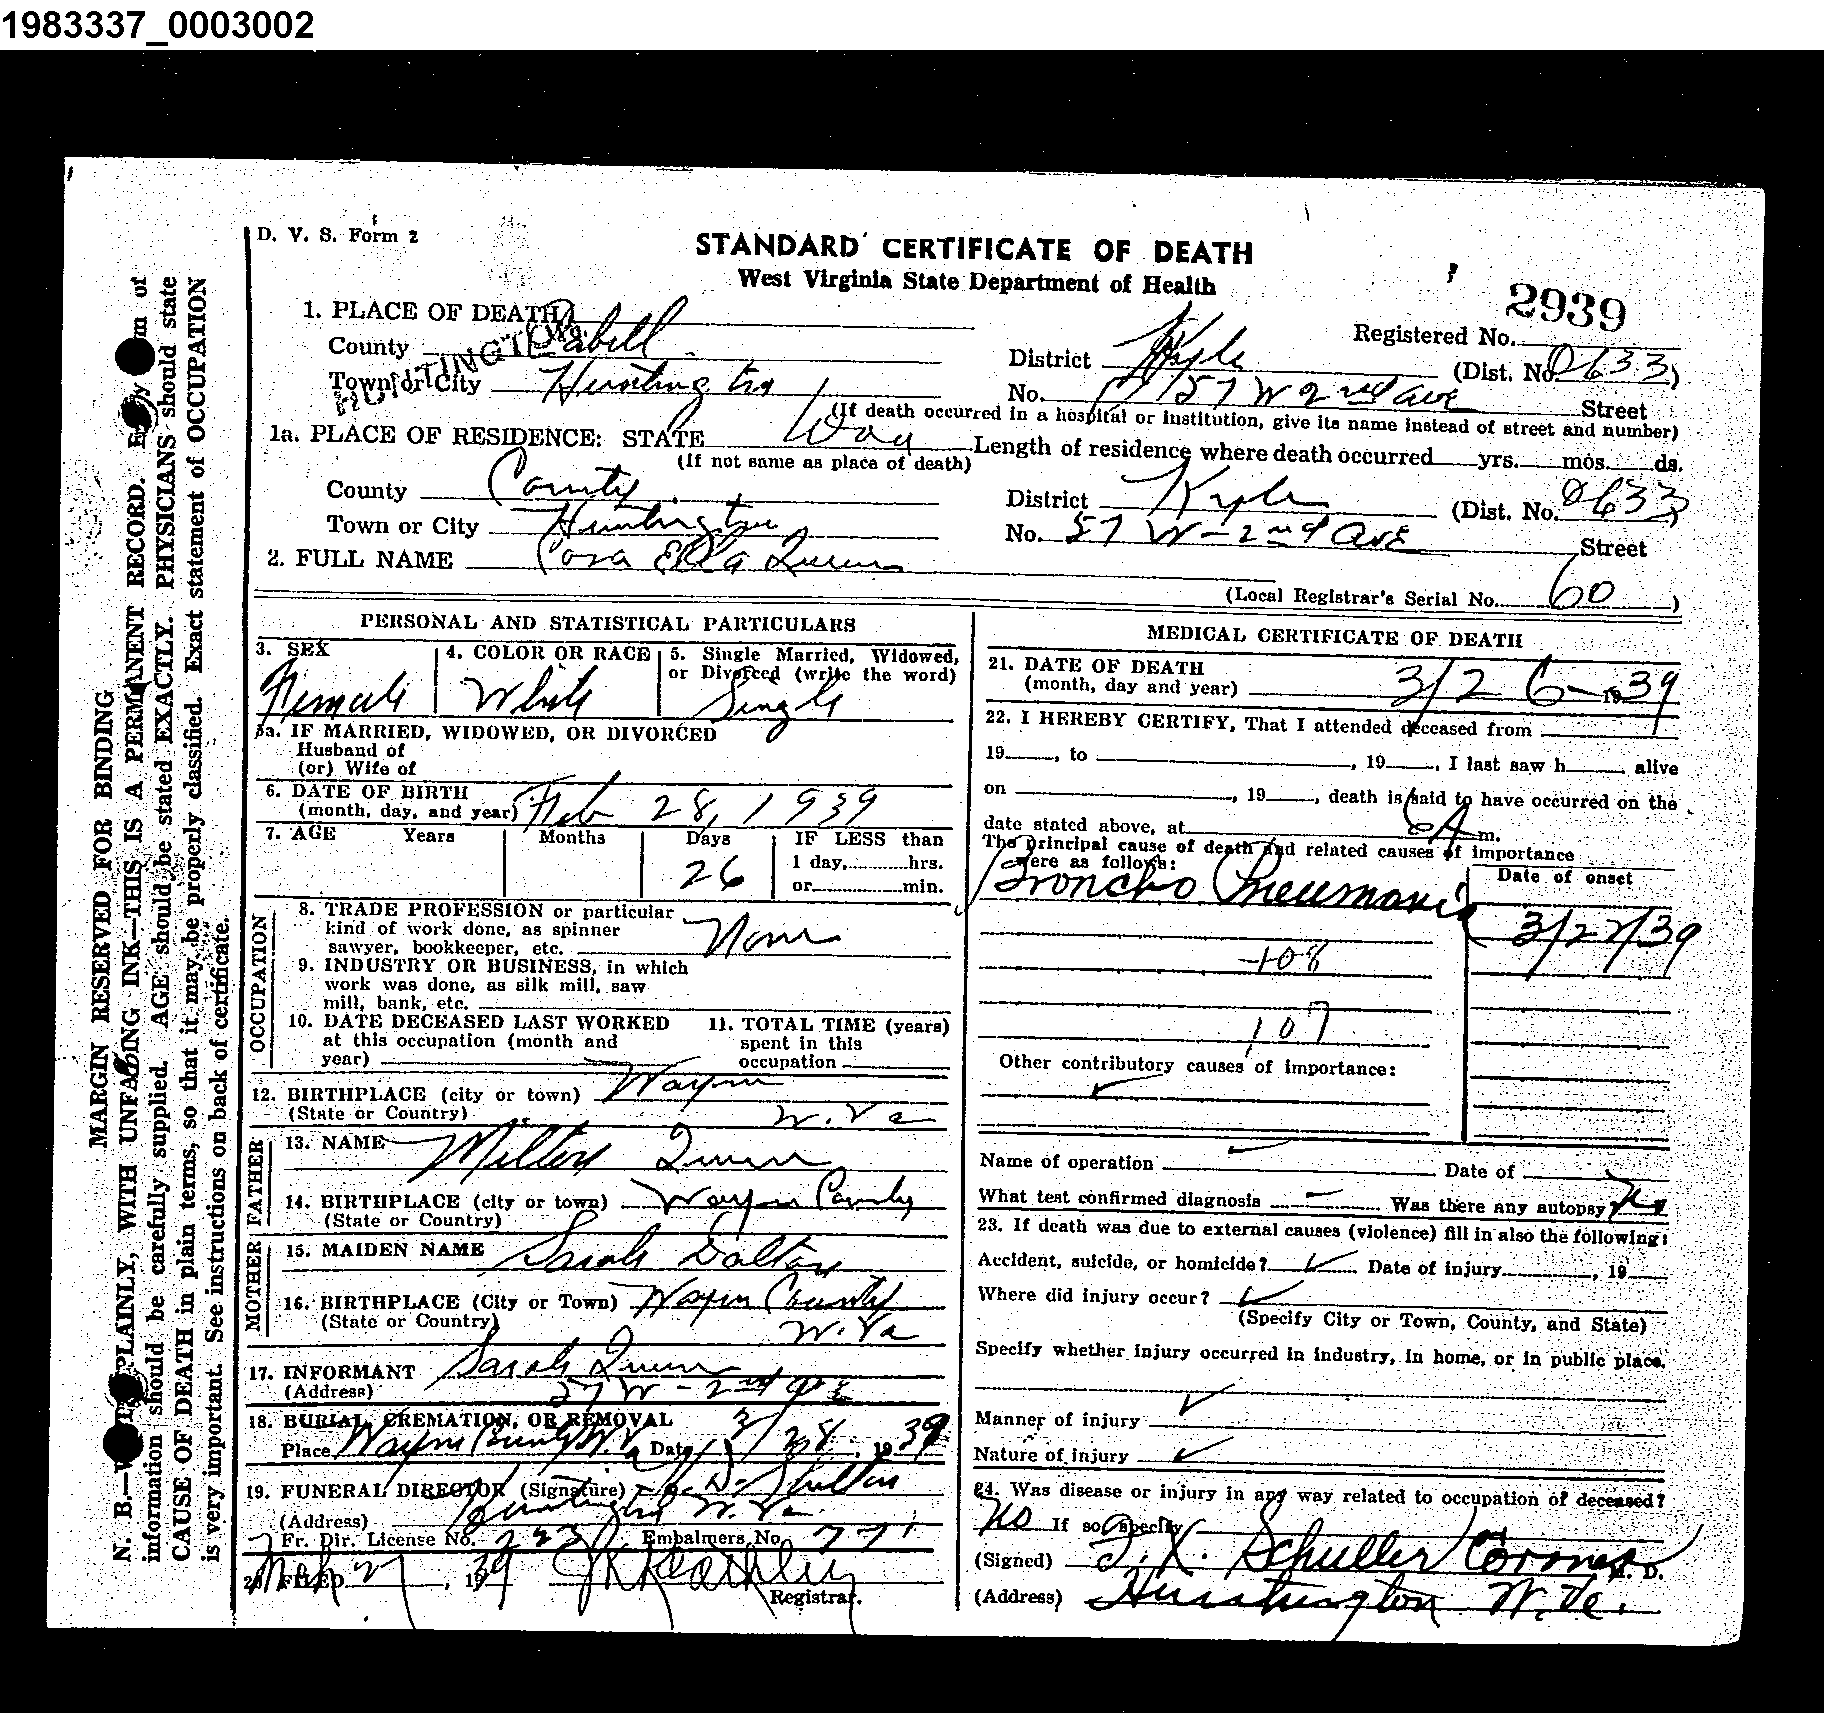 1983337_0003002
D. V. S. Form 2
STANDARD CERTIFICATE OF DEATH
West Virginia State Department of Health
2939
1. PLACE OF DEATH
Registered No.
HUNTINGTON
County Cabell
District Kyle (Dist. No. 0633)
Town or City Huntington
No. 57 W 2nd Ave Street
(If death occurred in a hospital or institution, give its name instead of street and number)
1a. PLACE OF RESIDENCE: STATE
(If not same as place of death)
Length of residence where death occurred yrs. mos. ds.
County County
District Kyle (Dist. No. 0633)
Town or City Huntington
No. 57 W - 2nd Ave Street
2. FULL NAME Cora Ella Queen
(Local Registrar's Serial No. 60)
PERSONAL AND STATISTICAL PARTICULARS
3. SEX Female
4. COLOR OR RACE White
5. Single Married, Widowed, or Divorced (write the word) Single
5a. IF MARRIED, WIDOWED, OR DIVORCED
Husband of
(or) Wife of
6. DATE OF BIRTH
(month, day, and year) Feb 28, 1939
7. AGE Years Months Days 26 IF LESS than
1 day, hrs.
or min.
OCCUPATION
8. TRADE PROFESSION or particular
kind of work done, as spinner
sawyer, bookkeeper, etc. None
9. INDUSTRY OR BUSINESS, in which
work was done, as silk mill, saw
mill, bank, etc.
10. DATE DECEASED LAST WORKED
at this occupation (month and
year)
11. TOTAL TIME (years)
spent in this
occupation
12. BIRTHPLACE (city or town) Wayne
(State or Country) W. Va
FATHER
13. NAME Milton Queen
14. BIRTHPLACE (city or town) Wayne County
(State or Country)
MOTHER
15. MAIDEN NAME Sarah Dalton
16. BIRTHPLACE (City or Town) Wayne County
(State or Country) W. Va
17. INFORMANT Sarah Queen
(Address) 57 W - 2nd Ave
18. BURIAL, CREMATION, OR REMOVAL
Place Wayne County W. Va Date 3/28, 1939
19. FUNERAL DIRECTOR (Signature)
(Address) Huntington W. Va.
Fr. Dir. License No. Embalmers No. 771
20. FILED Mch 27, 1939
Registrar.
MEDICAL CERTIFICATE OF DEATH
21. DATE OF DEATH
(month, day and year) 3/26 - 1939
22. I HEREBY CERTIFY, That I attended deceased from
19 , to , 19 , I last saw h alive
on , 19 , death is said to have occurred on the
date stated above, at 6 A m.
The principal cause of death and related causes of importance
were as follows:
Date of onset
Broncho Pneumonia 3/22/39
108
107
Other contributory causes of importance:
Name of operation Date of
What test confirmed diagnosis Was there any autopsy? No
23. If death was due to external causes (violence) fill in also the following:
Accident, suicide, or homicide? Date of injury , 19
Where did injury occur?
(Specify City or Town, County, and State)
Specify whether injury occurred in industry, in home, or in public place.
Manner of injury
Nature of injury
24. Was disease or injury in any way related to occupation of deceased?
No If so, specify
(Signed) Schuller Coroner M. D.
(Address) Huntington W. Va.
MARGIN RESERVED FOR BINDING
N. B.—WRITE PLAINLY, WITH UNFADING INK—THIS IS A PERMANENT RECORD. Every item of
information should be carefully supplied. AGE should be stated EXACTLY. PHYSICIANS should state
CAUSE OF DEATH in plain terms, so that it may be properly classified. Exact statement of OCCUPATION
is very important. See instructions on back of certificate.